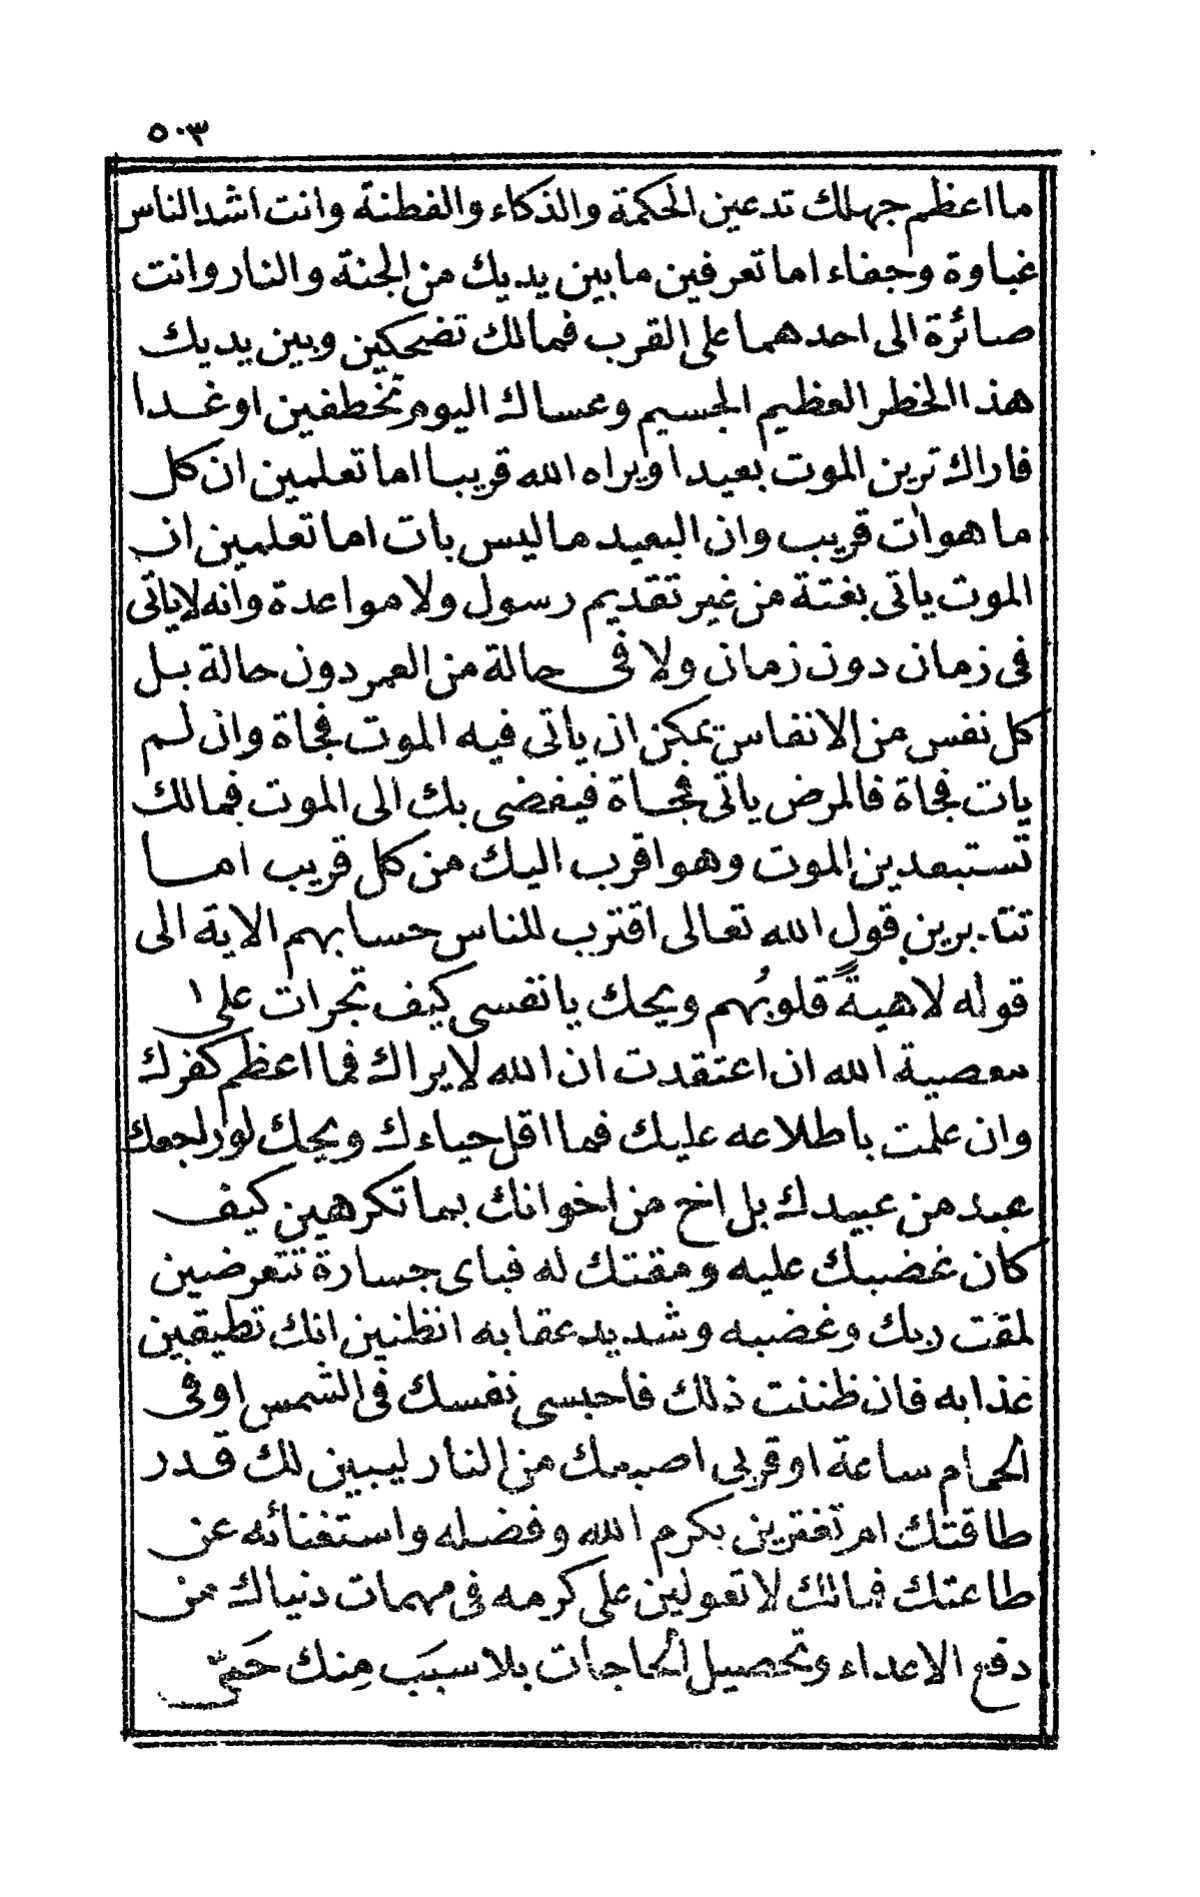 ٥٠٣
ما اعظم جهلك تدعين الحكمة والذكاء والفطنة وانت اشد الناس
غباوة وجفاء اما تعرفين ما بين يديك من الجنة والنار وانت
صائرة الى احدهما على القرب فمالك تضحكين وبين يديك
هذا الخطر العظيم الجسيم وعساك اليوم تخطفين او غدا
فاراك ترين الموت بعيدا ويراه الله قريبا اما تعلمين ان كل
ما هوات قريب وان البعيد ما ليس بات اما تعلمين ان
الموت ياتى بغتة من غير تقديم رسول ولا مواعدة وانه لاياتى
فى زمان دون زمان ولا فى حالة من العمر دون حالة بل
كل نفس من الانفاس يمكن ان ياتى فيه الموت فجاة وان لم
يات فجاة فالمرض ياتى فجاة فيفضى بك الى الموت فمالك
تستبعدين الموت وهو اقرب اليك من كل قريب اما
تتدبرين قول الله تعالى اقترب للناس حسابهم الاية الى
قوله لاهيةً قلوبُهم ويحك يا نفسى كيف تجرات على ا
معصية الله ان اعتقدت ان الله لا يراك فما اعظم كفرك
وان علمت باطلاعه عليك فما اقل حياءك ويحك لو راجعك
عبد من عبيدك بل اخ من اخوانك بما تكرهين كيف
كان غضبك عليه ومقتك له فباى جسارة تتعرضين
لمقت ربك وغضبه وشديد عقابه اتظنين انك تطيقين
عذابه فان ظننت ذلك فاحبسى نفسك فى الشمس او فى
الحمام ساعة او قربى اصبعك من النار ليبين لك قدر
طاقتك ام تغترين بكرم الله وفضله واستغنائه عن
طاعتك فمالك لا تعولين على كرمه فى مهمات دنياك من
دفع الاعداء وتحصيل الحاجات بلا سبَب مِنك حَتّى